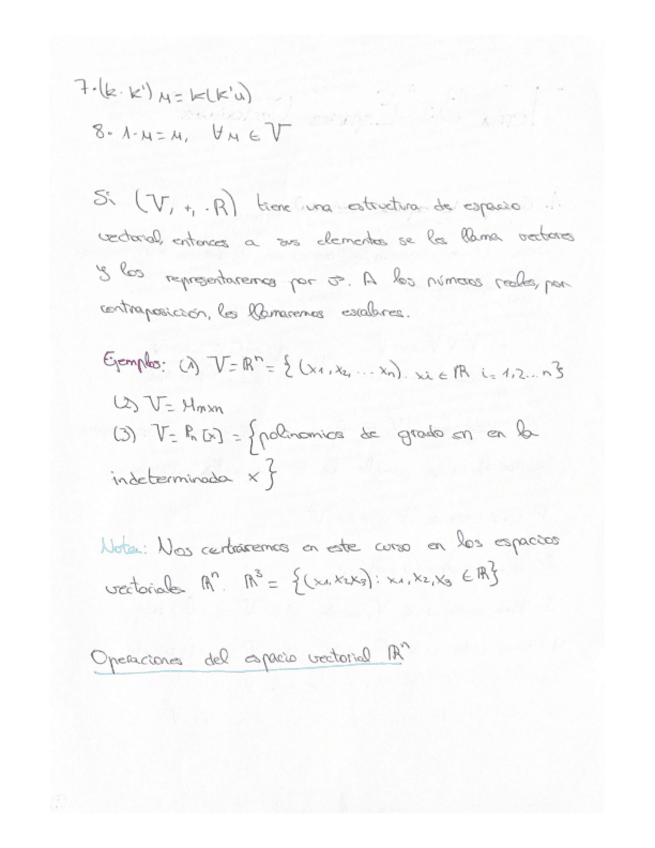 7·(k·k')u = k(k'u)
8· 1·u = u, ∀u ∈ V
Si (V, +, ·R) tiene una estructura de espacio
vectorial, entonces a sus elementos se les llama vectores
y los representaremos por v⃗. A los números reales, por
contraposición, les llamaremos escalares.
Ejemplos: (1) V = ℝⁿ = { (x1, x2, ... xn) xi ∈ ℝ i = 1,2... n}
(2) V = Mmxn
(3) V = Pn [x] = {polinomios de grado en en la
indeterminada x }
Nota: Nos centraremos en este curso en los espacios
vectoriales ℝⁿ. ℝ³ = {(x1, x2 x3): x1, x2, x3 ∈ ℝ}
Operaciones del espacio vectorial ℝⁿ